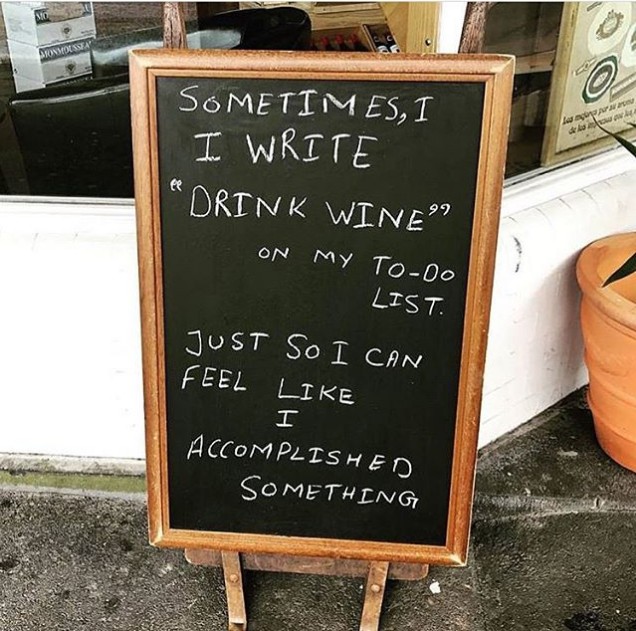 MONMOUSSEAU
SOMETIMES, I
I WRITE
"DRINK WINE"
ON MY TO-DO
LIST.
JUST SO I CAN
FEEL LIKE
I
ACCOMPLISHED
SOMETHING